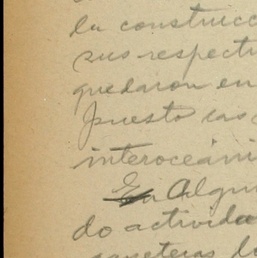 la construcc
sus respecti
quedaron en
puesto las
interoceáni
En Algun
do activida
carreteras la